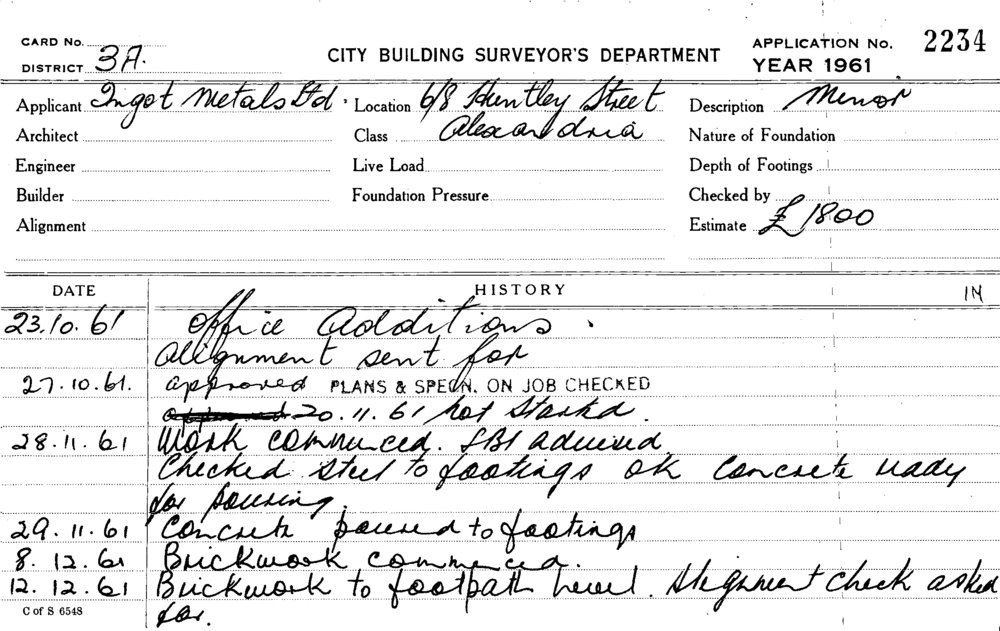 CARD No.
DISTRICT 3A.
CITY BUILDING SURVEYOR'S DEPARTMENT
APPLICATION No. 2234
YEAR 1961
Applicant Ingot Metals Ltd. Location 6/8 Huntley Street Description Minor
Architect Class Alexandria Nature of Foundation
Engineer Live Load Depth of Footings
Builder Foundation Pressure Checked by
Alignment Estimate £1800
DATE HISTORY IN
23.10.61 Office Additions.
Alignment sent for
27.10.61. approved PLANS & SPECN. ON JOB CHECKED
20.11.61 not started.
28.11.61 Work commenced. SBI advised
Checked steel to footings OK Concrete ready
for pouring.
29.11.61 Concrete poured to footings
8.12.61 Brickwork commenced.
12.12.61 Brickwork to footpath level. Alignment check asked
C of S 6548 for.